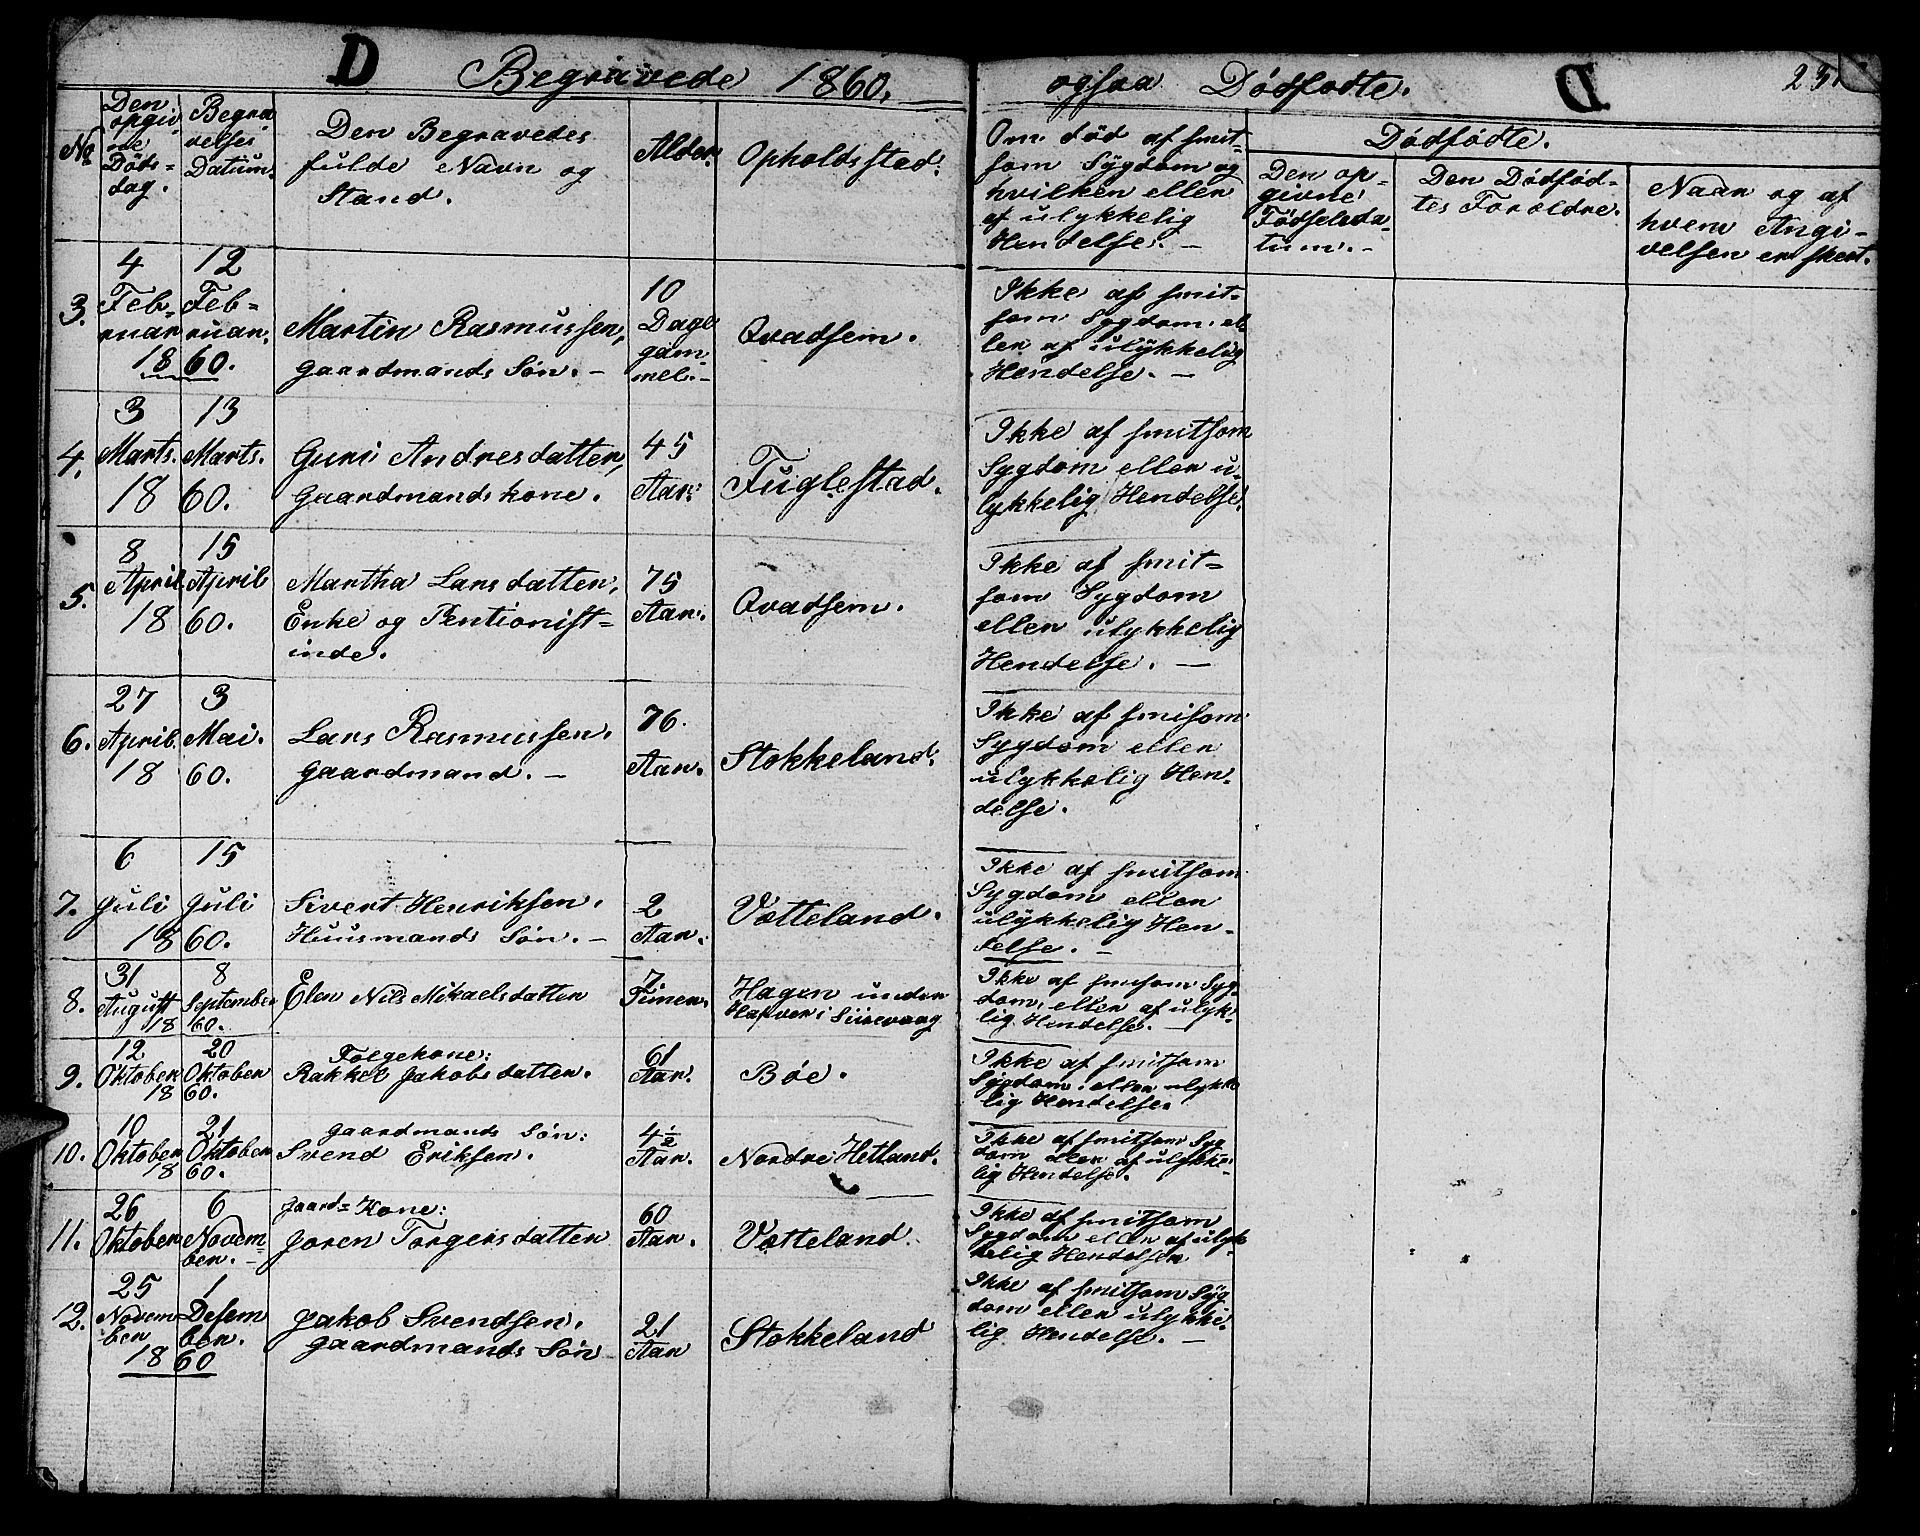 D Begravede 1860. ogsaa Dødfødte. D 23
No
Den
opgiv
ne
Døds-
dag.
Begra
velses
Datum.
Den Begravedes
fulde Navn og
Stand.
Alder.
Opholdsstad.
Om død af smit-
som Sygdom og
hvilken eller
af ulykkelig
Hendelse. —
Dødfødte.
Den op-
givne
Fødselsda-
tum. -
Den Dødfød-
tes Foreldre.
Naar og af
hvem Angi-
velsen er skeet.
3.
4
Feb-
ruar
12
Feb-
ruar.
1860.
Martin Rasmussen,
Gaardmands Søn. —
10
Dage
gam-
mel. -
Qvadsem.
Ikke af smit-
som Sygdom. el-
ler af ulykkelig
Hendelse. —
4.
3
Marts.
13
Marts.
1860.
Guri Andresdatter,
Gaardmands kone.
45
Aar.
Fuglestad.
Ikke af smitsom
Sygdom eller u-
lykkelig Hendelse.
5.
8
April
15
April
1860.
Martha Larsdatter,
Enke og Pentionist-
inde.
75
Aar.
Qvadsem.
Ikke af smit-
som Sygdom
eller ulykkelig
Hendelse. —
6.
27
April.
3
Mai.
1860.
Lars Rasmussen.
Gaardmand. —
76.
Aar.
Stokkeland.
Ikke af smisom
Sygdom eller
ulykkelig Hen-
delse.
7.
6
Juli
15
Juli
1860.
Sivert Henriksen.
Huusmands Søn. —
2
Aar.
Votteland.
Ikke af smitsom
Sygdom eller
ulykkelig Hen-
delse. -
8.
31
August
8
September
1860.
Elen Nils Mikaelsdatter
7
Timer.
Hagen under
Haver i Siirevaag
Ikke af smisom Syg-
dom, eller af ulyk-
lig Hendelse. —
9.
12
Oktober
20
Oktober
1860.
Folgekone:
Rakkel Jakobsdatter.
61
Aar.
Bøe.
Ikke af smitsom
Sygdom. eller ulykke
lig Hendelse.
10.
10
Oktober
21
Oktober
1860.
Gaardmands Søn:
Svend Eriksen.
4½
Aar.
Nordre Hetland.
Ikke af smitsom Syg
dom eller af ulykke-
lig Hendelse.
11.
26
Oktober
6
Novem-
ber. -
Gaard= Kone:
Joren Torgersdatter
60
Aar.
Votteland.
Ikke af smitsom
Sygdom eller af ulyk
kelig Hendelser
12.
25
Novem-
ber
1
Desem
ber.
1860
Jakob Svendsen.
Gaardmands Søn
21
Aar
Stokkeland
Ikke af smitsom Syg
dom eller ulykke-
lig Hendelse. —